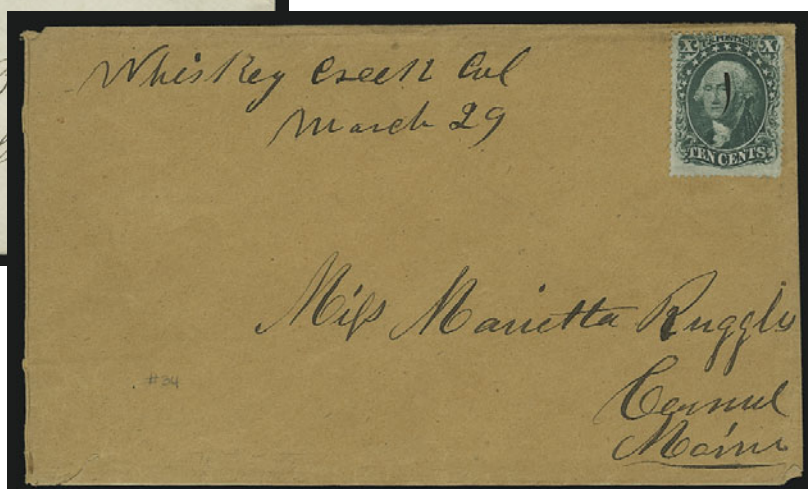 Whiskey Creek Cal
March 29
X U.S. POSTAGE X
TEN CENTS
Miss Marietta Ruggles
Carmel
Maine
#34